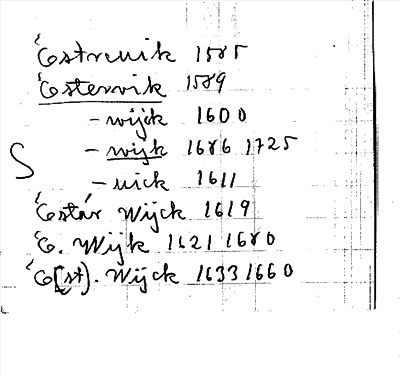 Östrenik 1585
Östervik 1589
- wijck 1600
- wijk 1686 1725
S
- uick 1611
Östár Wijck 1619
Ö. Wijk 1621 1680
Ö[st). Wijck 1633 1660